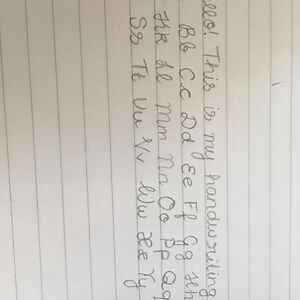 ello! This is my handwriting
Bb Cc Dd Ee Ff Gg Hh
Kk Ll Mm Nn Oo Pp Qq
Ss Tt Uu Vv Ww Xx Yy